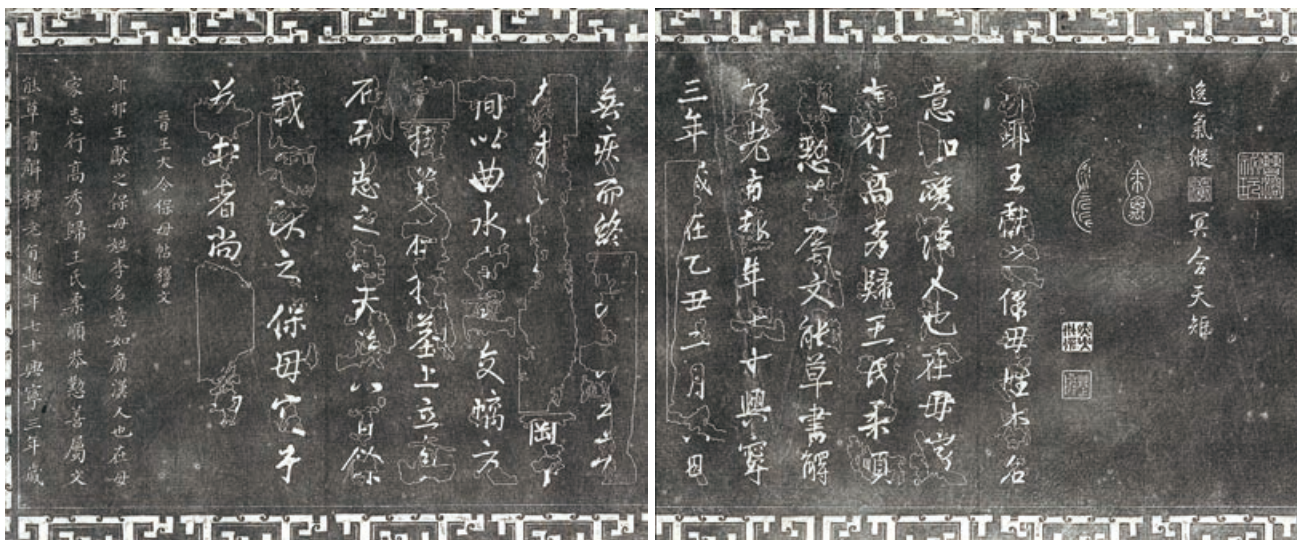 逸氣縱冥合天矩
郎耶王獻之保母姓李名
意如廣漢人也在母家
志行高秀歸王氏柔順
恭懃善屬文能草書解
釋老旨趣年七十興寧
三年歲在乙丑二月六日
無疾而終
岡下
間以曲水交螭方
樹於墓上立貞
石而志之夫後八百餘
載獻之保母宮于
茲土者尚
晉王大令保母帖釋文
郎邪王獻之保母姓李名意如廣漢人也在母
家志行高秀歸王氏柔順恭懃善屬文
能草書解釋老旨趣年七十興寧三年歲